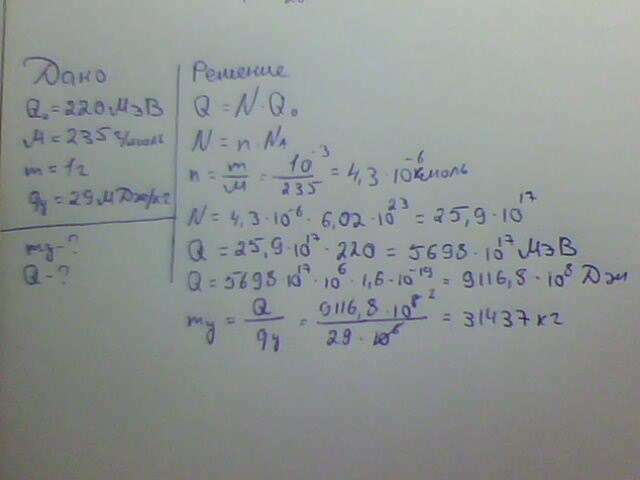 Дано
Q₀ = 220 МэВ
M = 235 г/моль
m = 1 г
qy = 29 МДж/кг
my - ?
Q - ?
Решение
Q = N · Q₀
N = n · NA
n = m/M = 10⁻³/235 = 4,3 · 10⁻⁶ кмоль
N = 4,3 · 10⁻⁶ · 6,02 · 10²³ = 25,9 · 10¹⁷
Q = 25,9 · 10¹⁷ · 220 = 5698 · 10¹⁷ МэВ
Q = 5698 · 10¹⁷ · 10⁶ · 1,6 · 10⁻¹⁹ = 9116,8 · 10⁸ Дж
my = Q/qy = 9116,8 · 10⁸ ²/29 · 10⁶ = 31437 кг